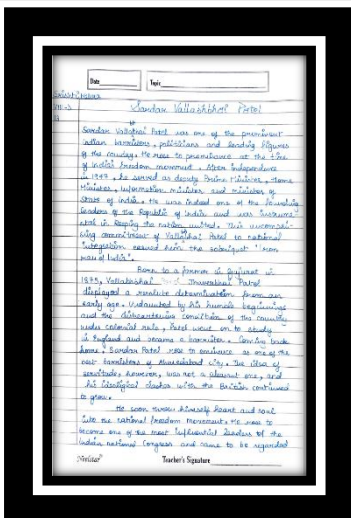 Date
Topic
VII-D
Sardar Vallabhbhai Patel
Sardar Vallabhai Patel was one of the prominent
Indian barristers, politicians and leading figures
of the country. He rose to prominence at the time
of India's freedom movement. After independence
in 1947, he served as deputy Prime Minister, Home
Minister, information minister and minister of
State of India. He was indeed one of the founding
leaders of the Republic of India and was instrum-
ental in keeping the nation united. This uncompromi-
sing commitment of Vallabhai Patel to national
integration earned him the sobriquet "iron
man of India".
Born to a farmer in Gujarat in
1875, Vallabhbhai Jhaverbhai Patel
displayed a resolute determination from an
early age. Undaunted by his humble beginnings
and the disheartening condition of the country
under colonial rule, Patel went on to study
in England and became a barrister. Coming back
home, Sardar Patel rose to eminence as one of the
best barristers of Ahmedabad city. The idea of
servitude, however, was not a pleasant one, and
his idealogical clashes with the British continued
to grow.
He soon threw himself heart and soul
into the national freedom movement. He rose to
become one of the most influential leaders of the
Indian national Congress and came to be regarded
Navkar
Teacher's Signature